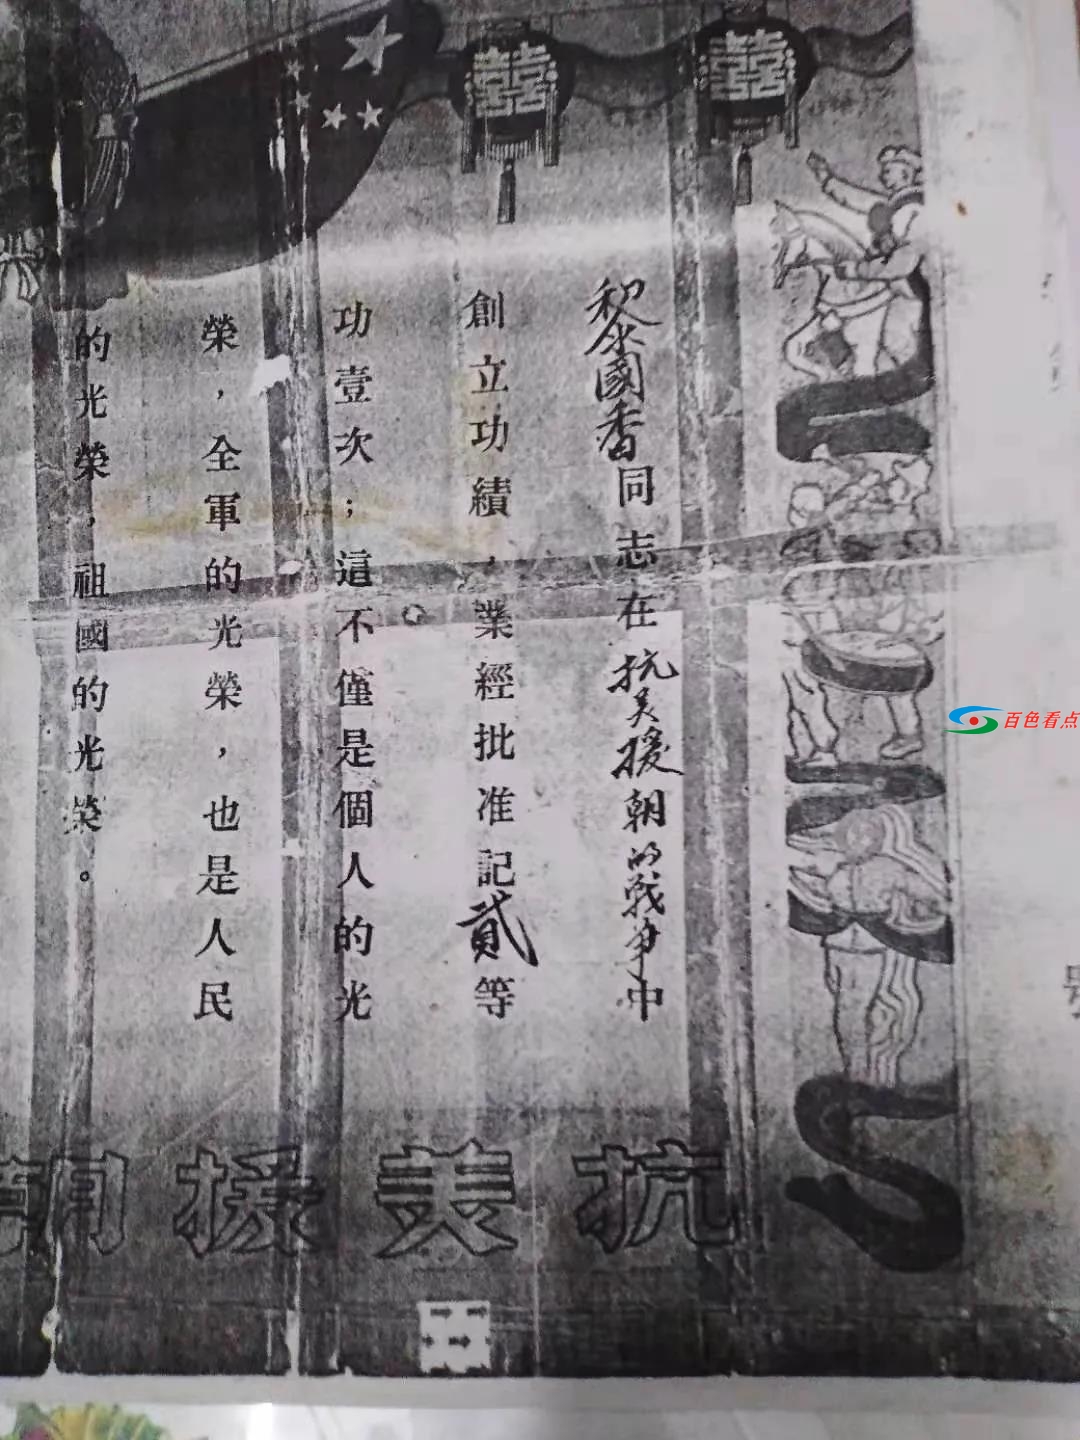 囍 囍
黎國香同志在抗美援朝的戰争中
創立功績，業經批准記貳等
功壹次；這不僅是個人的光
榮，全軍的光榮，也是人民
的光榮，祖國的光榮。
抗美援朝
百色看点